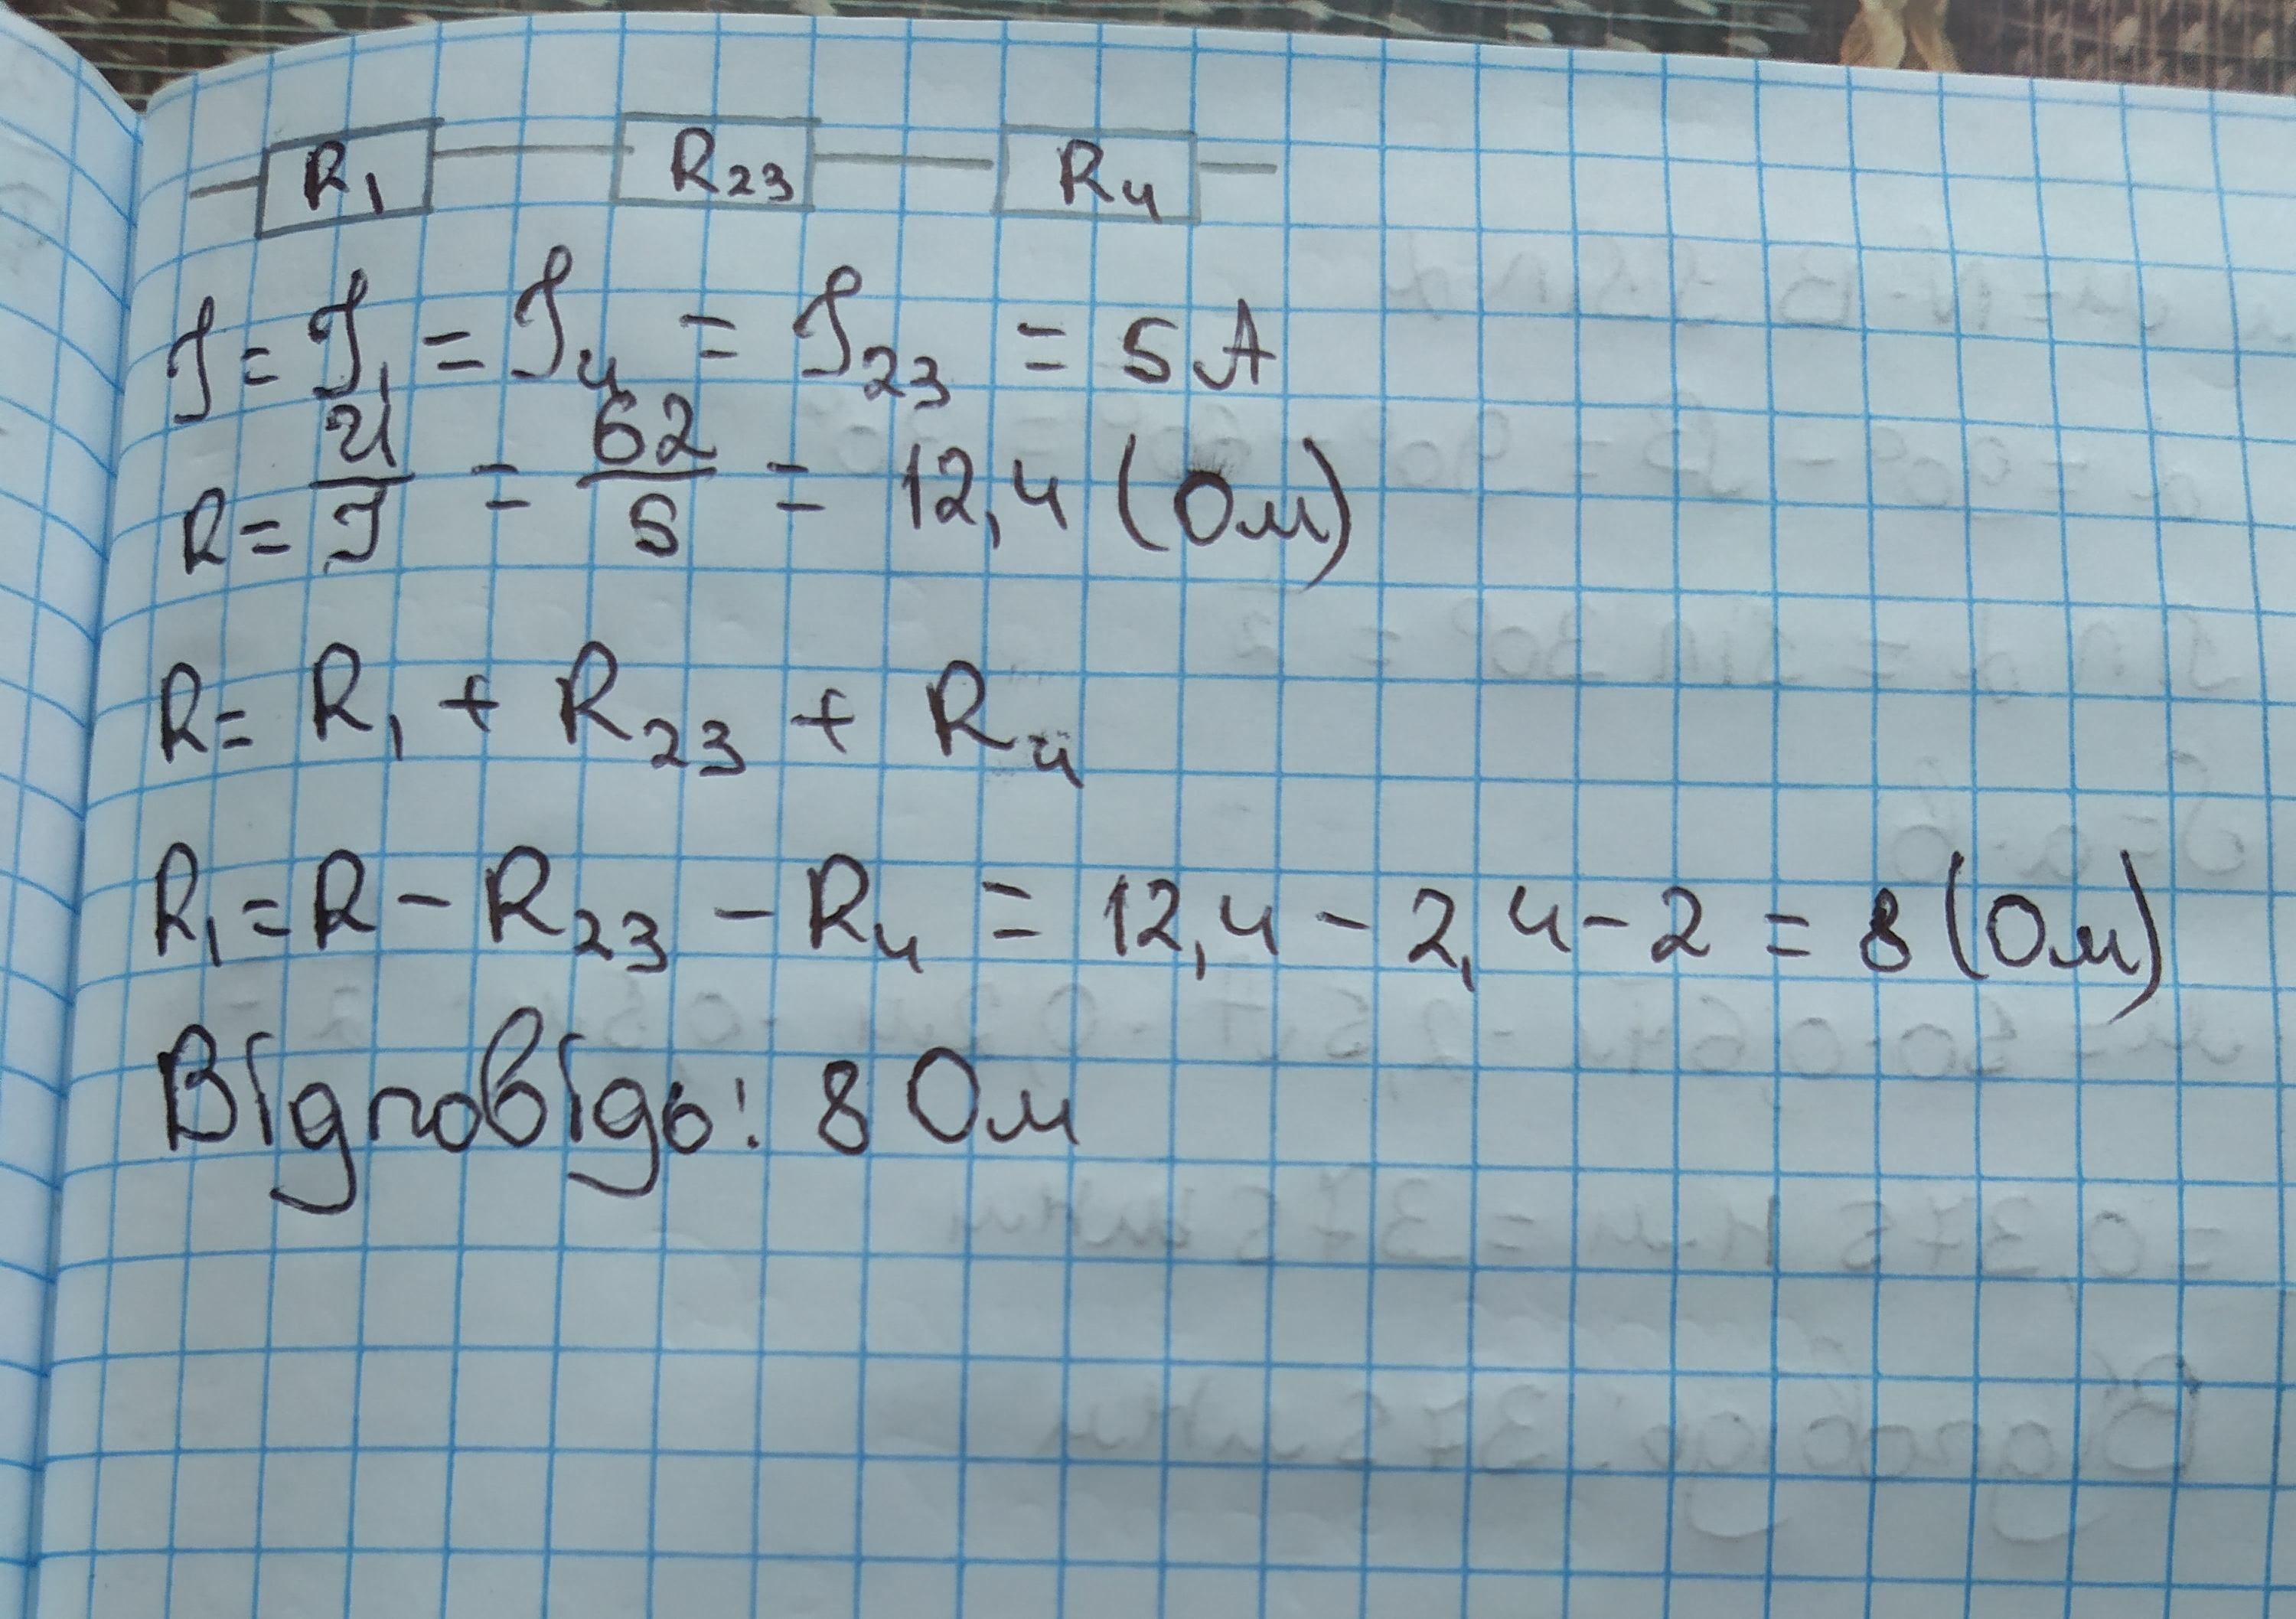 R₁ R₂₃ R₄
I = I₁ = I₄ = I₂₃ = 5 A
R = U/I = 62/5 = 12,4 (Ом)
R = R₁ + R₂₃ + R₄
R₁ = R - R₂₃ - R₄ = 12,4 - 2,4 - 2 = 8 (Ом)
Відповідь: 8 Ом